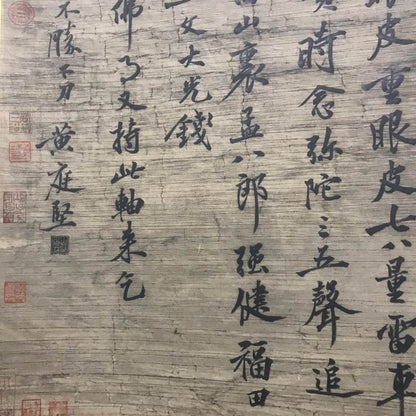 皮重眼皮七八量雷車
時念弥陀三五聲追
山裏孟八郎强健福田
文大光錢
佛又持此軸来乞
不勝黄庭堅